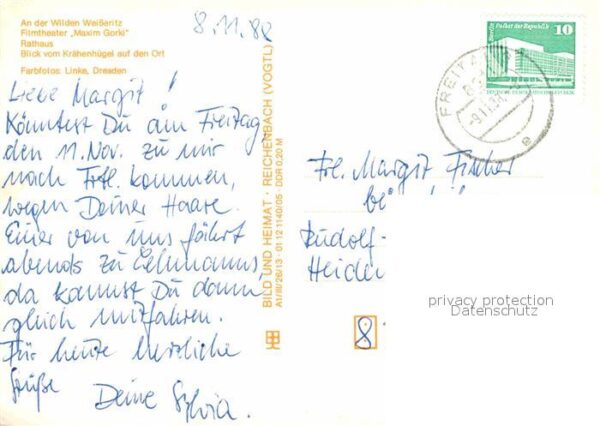 An der Wilden Weißeritz
Filmtheater „Maxim Gorki"
Rathaus
Blick vom Krähenhügel auf den Ort
Farbfotos: Linke, Dresden
8.11.82
Liebe Margit!
Könntest Du am Freitag
den 11. Nov. zu mir
nach Frtl. kommen,
wegen Deiner Haare.
Einer von uns fährt
abends zu Lehmanns,
da kannst Du dann
gleich mitfahren.
Für heute herzliche
Grüße
Deine Sylvia.
BILD UND HEIMAT · REICHENBACH (VOGTL)
A1/III/26/13 01 12 1140/05 DDR 0,20 M
Berlin, Palast der Republik
10
DDR
FREITAL
e
Frl. Margit Fischer
bei
Rudolf-
8
privacy protection
Datenschutz